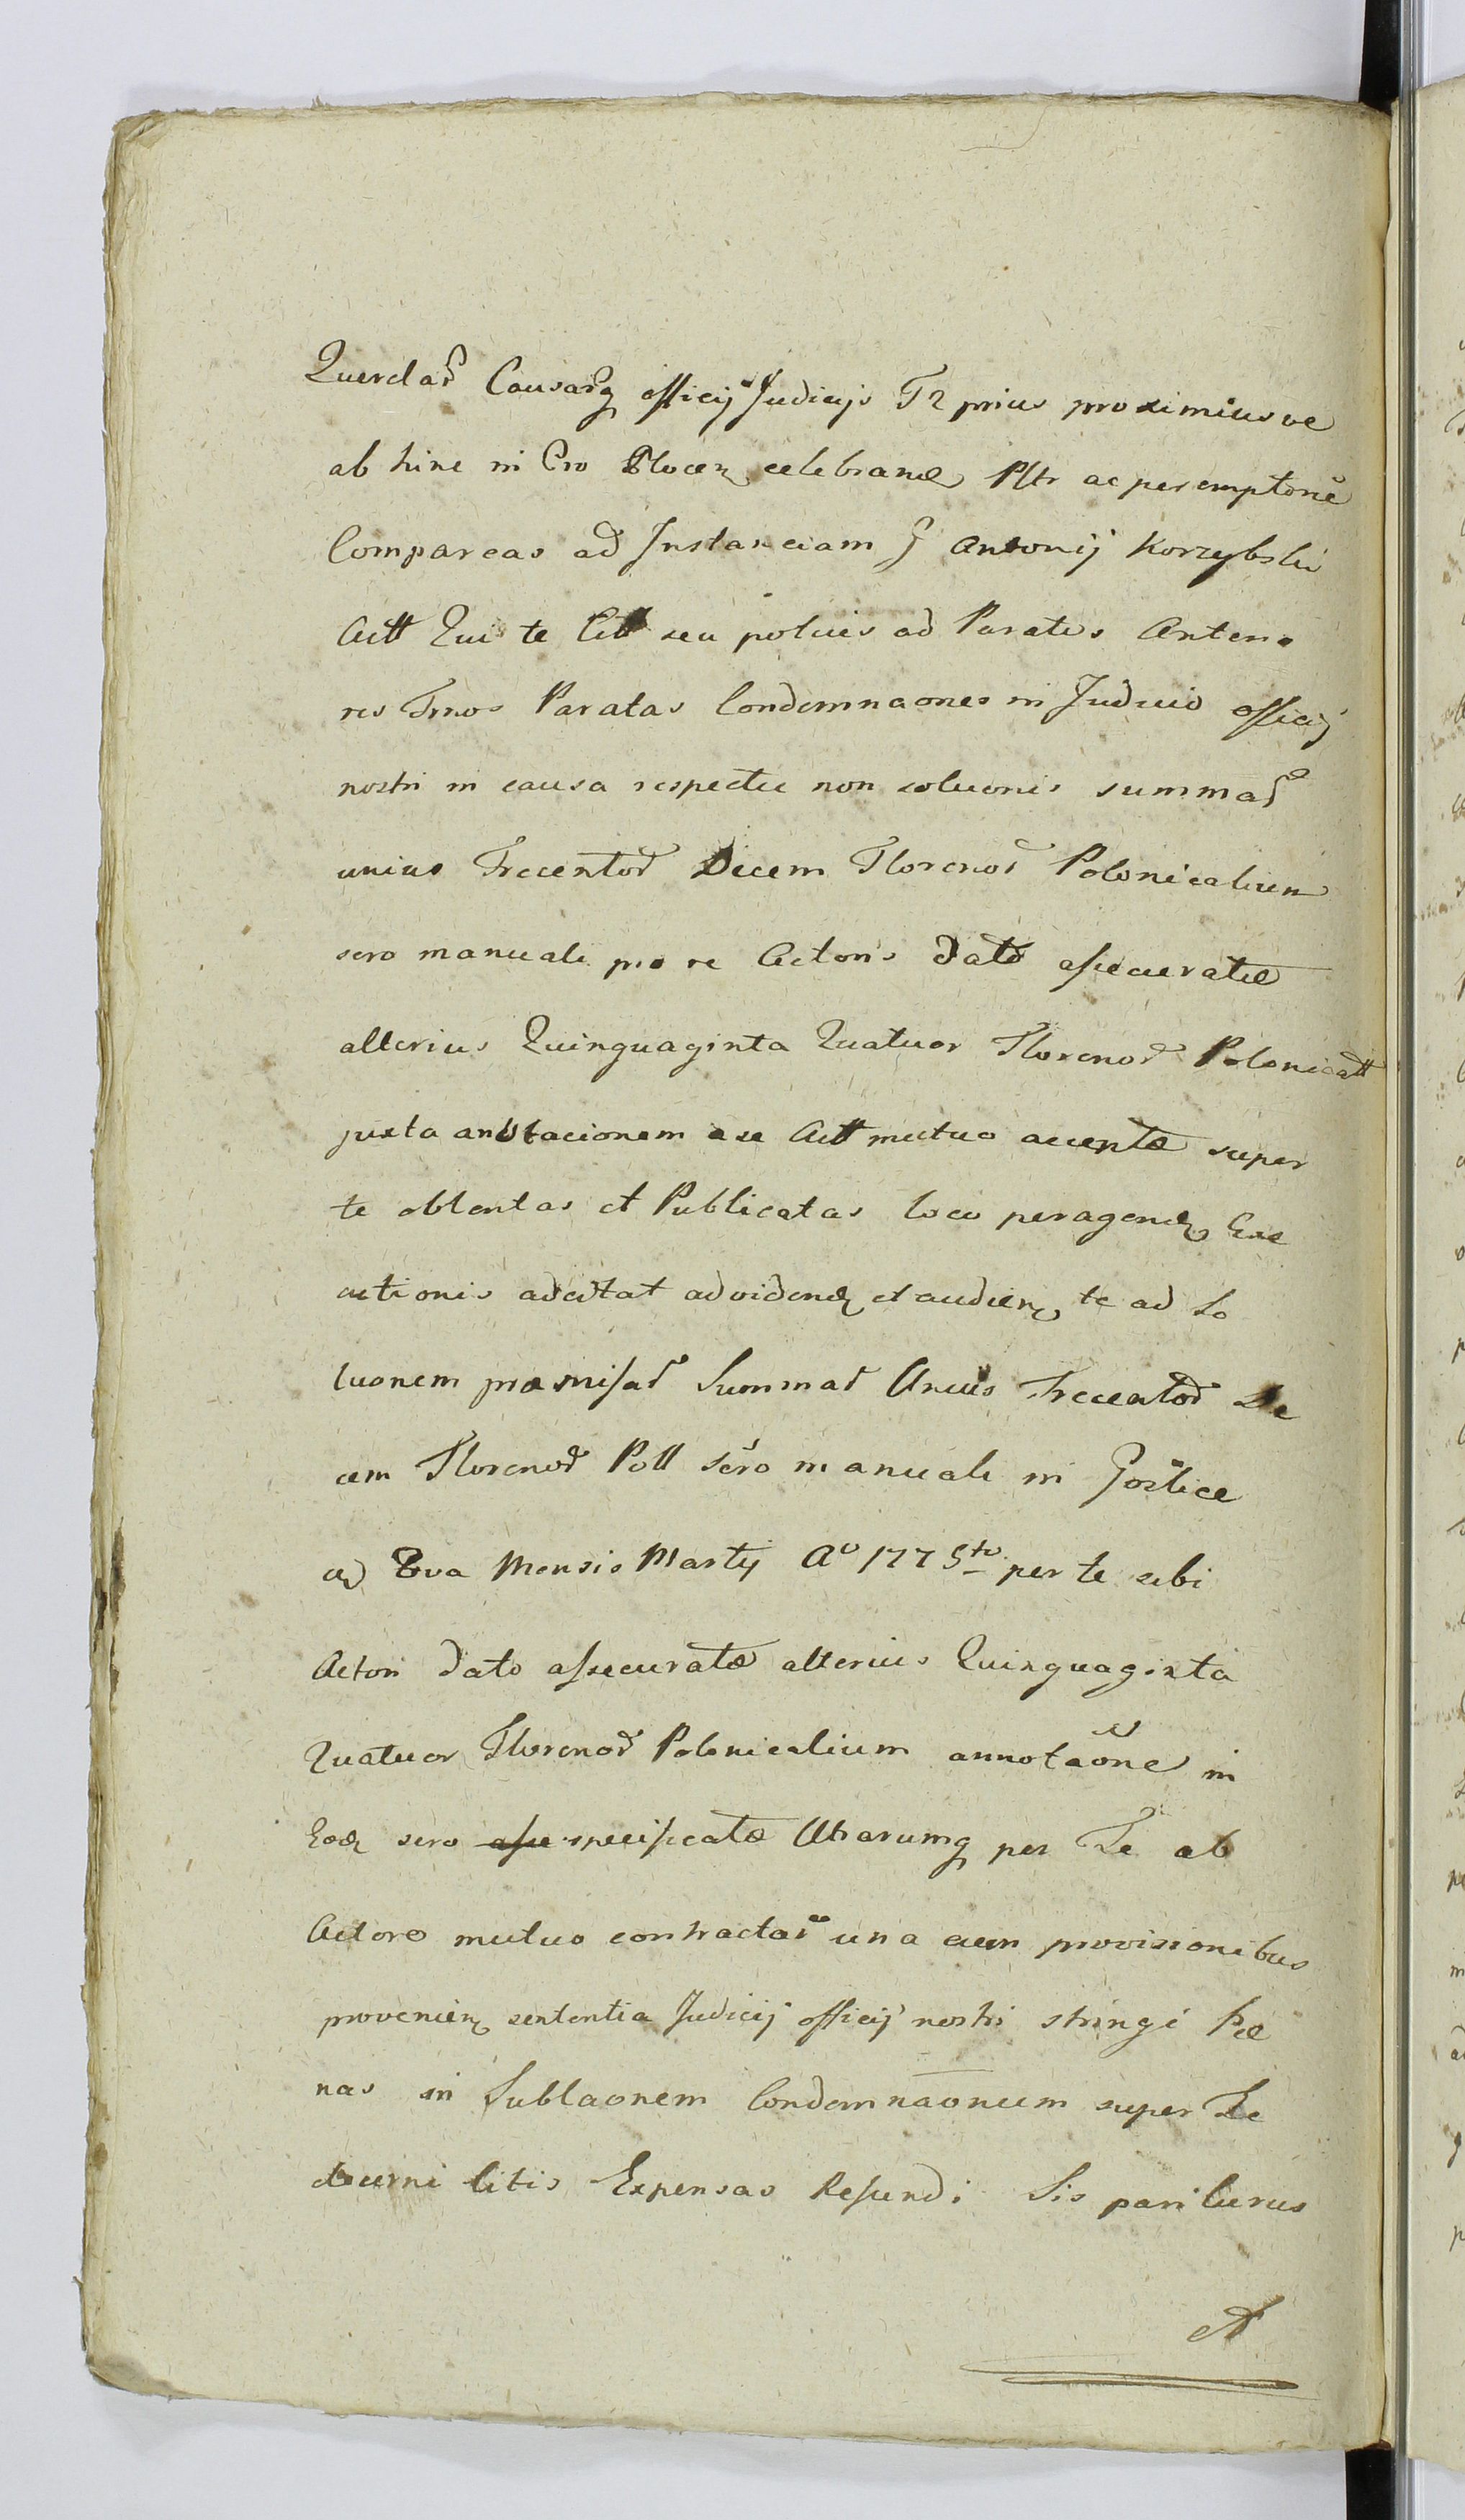 Querelar Causarq officij Judicijs Tr prius proximiusve
ab hinc in Cro Plocen celebrand Pltr ac peremptorie
Compareas ad Instanciam G Antonij Korzybski
Actt Qui te Citt seu potius ad Paratas Anterio
res Tmos Paratas Condemnaones in Judicio officij
nostri in causa respectu non soluonis summar
unius Trecentor Decem Florenor Polonicalium
scro manuali pro re Actoris dato assecuratæ
alterius Quinquaginta Quatuor Florenor Polonicatt
juxta annotacionem a se Actt mutuo acceptæ super
te obtentas et Publicatas loco peragend Exe
cutionis adcitat ad vidend et audien te ad So
luonem præmissar Summar Unius Trecentor De
cem Florenor Poll scro manuali in Goslice
ad 8va Mensis Martij Ao 1775to per te sibi
Actori dato assecuratæ alterius Quinquaginta
Quatuor Florenor Polonicalium annotaone in
Eod scro asse specificatæ Utrarumq per Te ab
Actore mutuo contractar una cum provisionibus
provenien sententia Judicij officij nostri stringi Pæ
nas in Sublaonem Condemnaonum super Te
decerni litis Expensas Refundi Sis pariturus
et